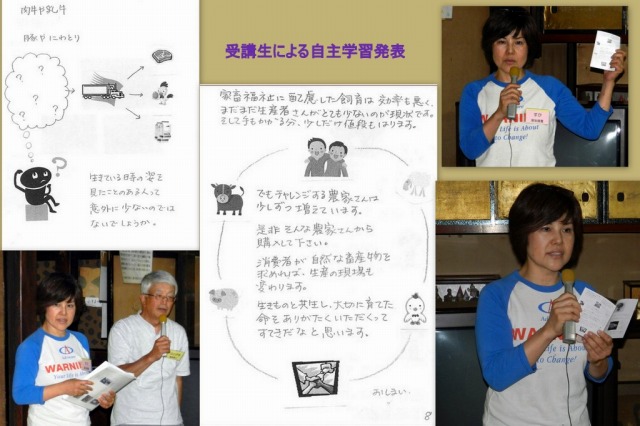 肉牛や乳牛
豚や にわとり
生きている時の姿を
見たことのある人って
意外に少ないのでは
ないでしょうか。
受講生による自主学習発表
家畜福祉に配慮した飼育は 効率も悪く、
まだまだ生産者さんがとても少ないのが現状です。
そして手もかかる分、少しだけ値段もはります。
でもチャレンジする農家さんは
少しずつ増えています。
是非 そんな農家さんから
購入して下さい。
消費者が 自然な畜産物を
求めれば、生産の現場も
変わります。
生きものと共生し、大切に育てた
命をありがたくいただくって
すてきだなと思います。
おしまい
8
WARNI
Your life is Abou
to Change!
WARNI
r Life is About
to Change!
WARNIN
life is About
to Change!